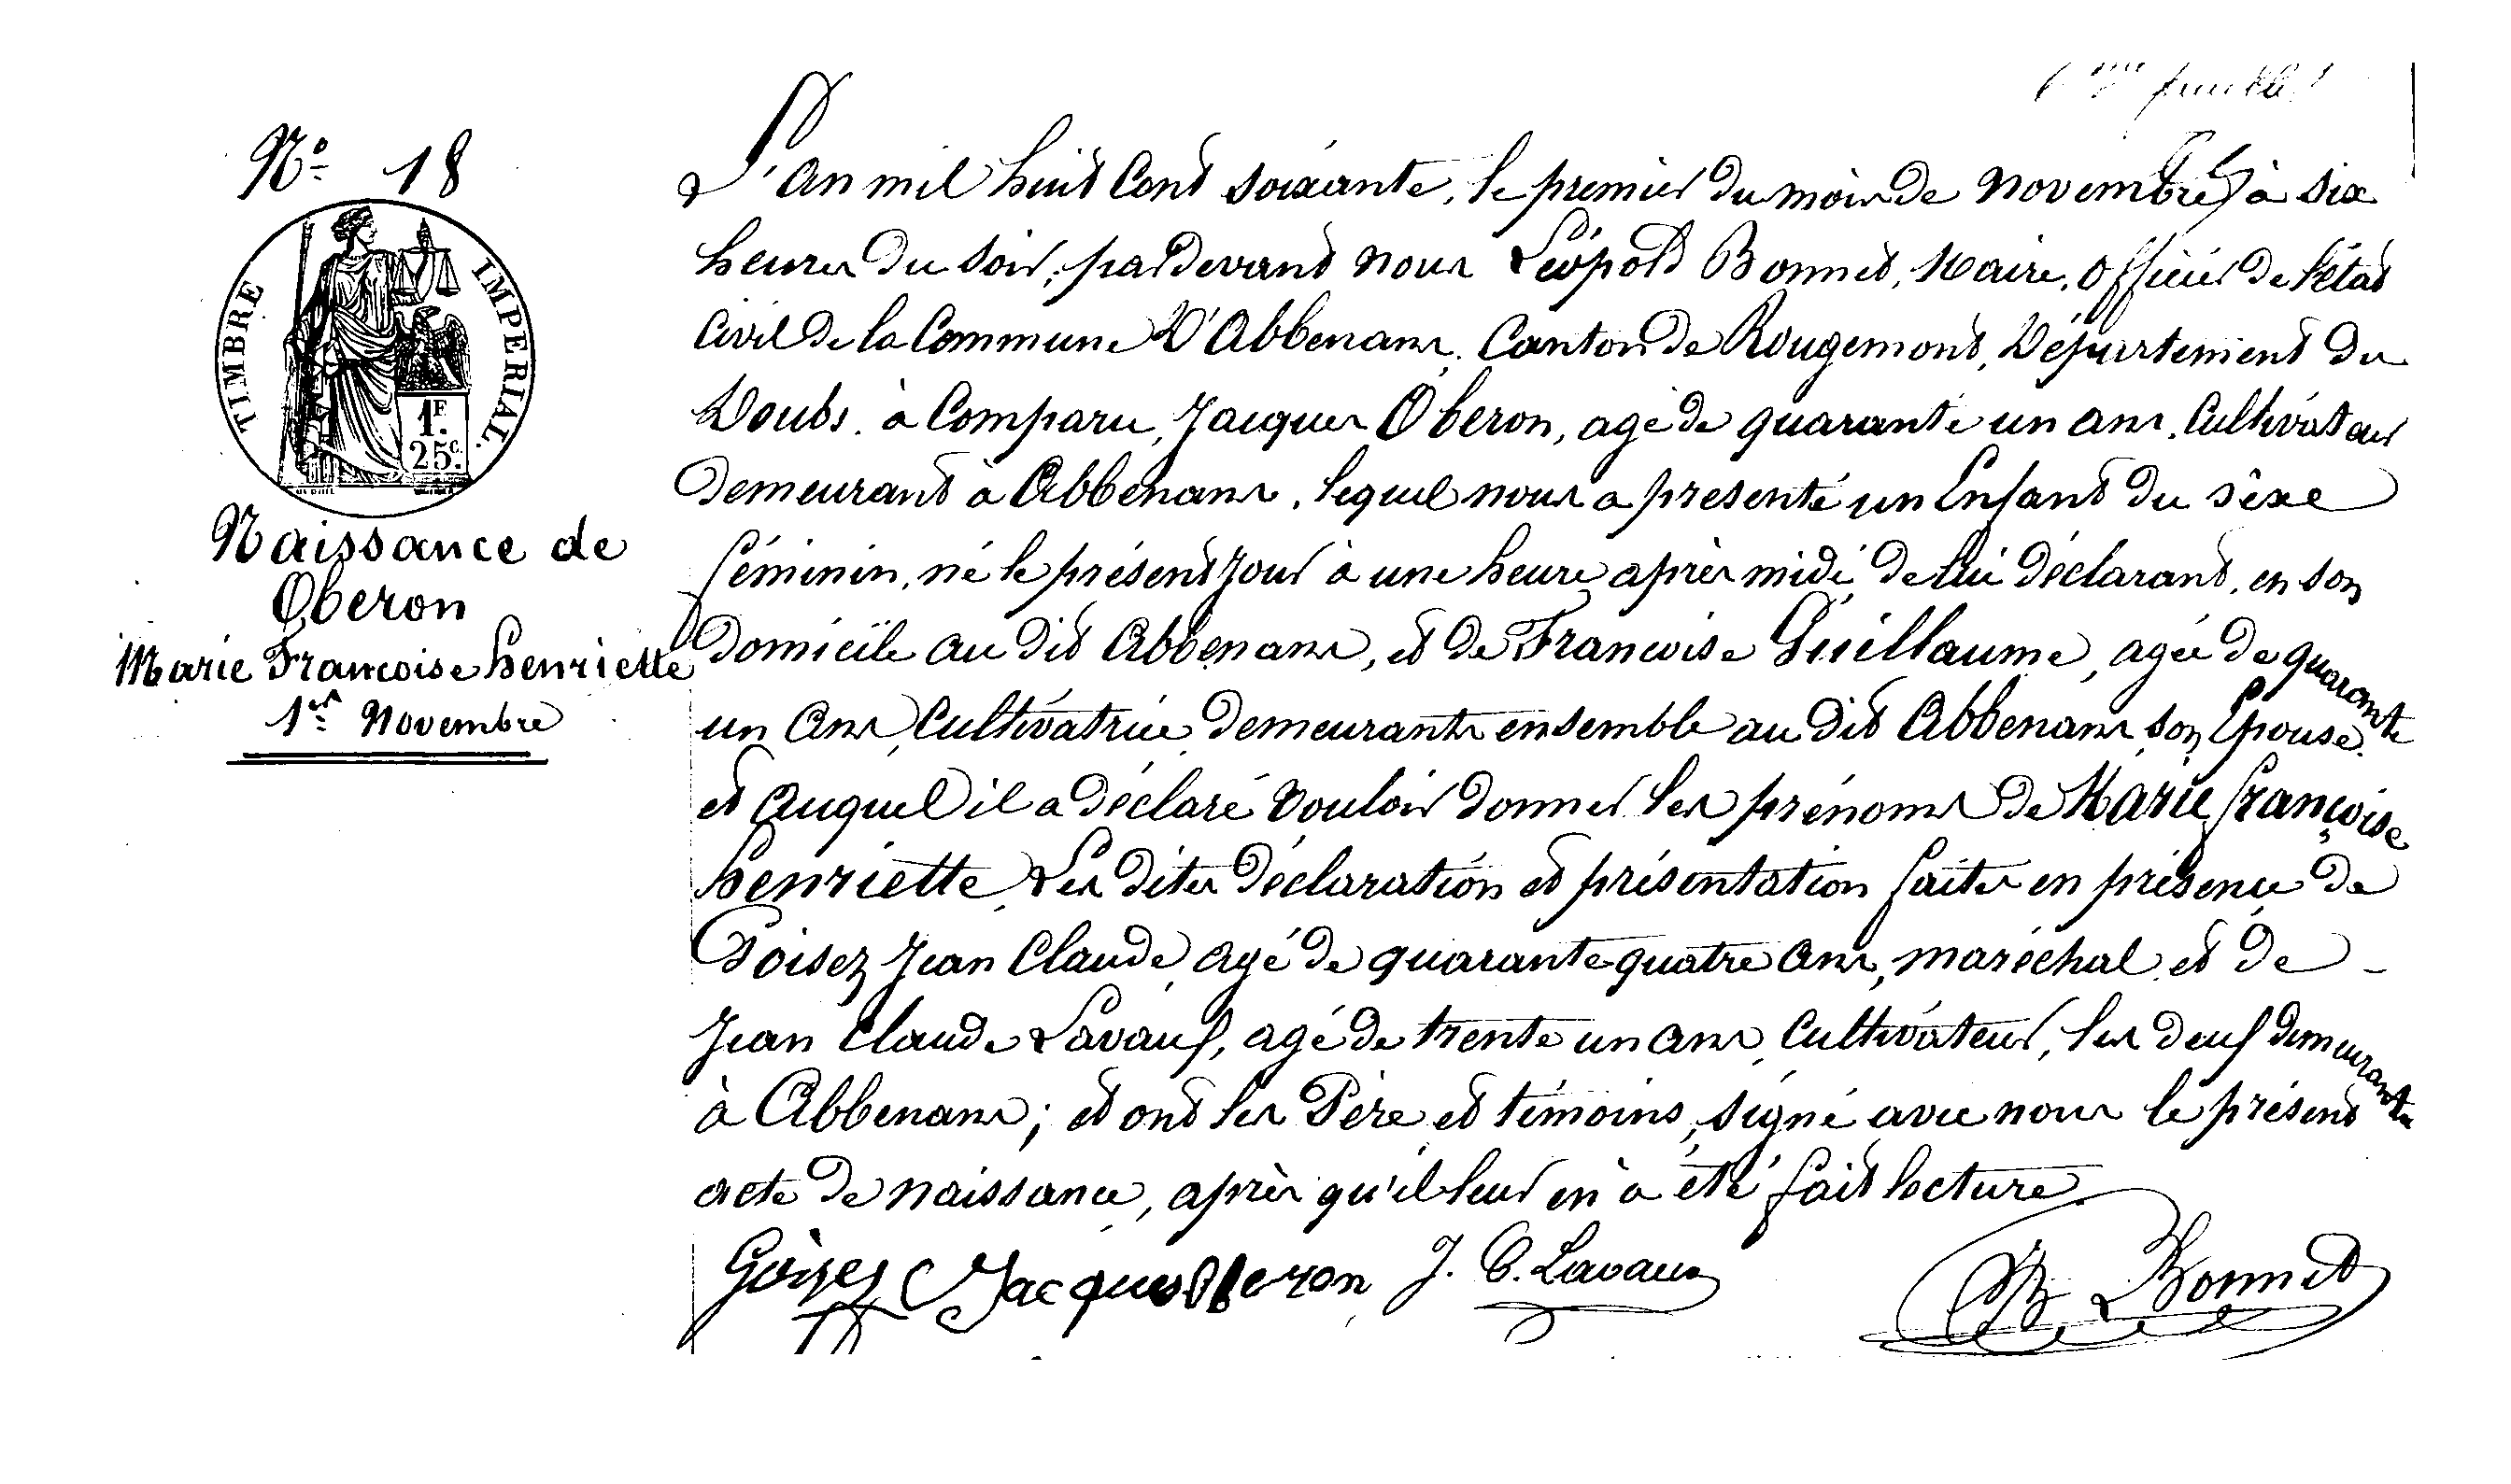 feuillet
N° 18
TIMBRE IMPERIAL
1F.
25c.
Naissance de
Oberon
Marie Francoise henriette
1er Novembre
L'an mil huit Cent soixante, le premier du mois de Novembre à six
heures du soir, pardevant nous Léopold Bonnet, Maire, officier de l'état
Civil de la Commune D'Abbenans, Canton de Rougemont, Département du
Doubs. à Comparu, Jacques Oberon, agé de quarante un ans, Cultivateur
demeurant à Abbenans, lequel nous a présenté un Enfant du sèxe
féminin, né le présent jour à une heure après midi, de lui déclarant, en son
domicile au dit Abbenans, et de Francoise Guillaume, agée de quarante
un ans, Cultivatrice demeurants ensemble au dit Abbenans, son Epouse.
et auquel il a déclaré vouloir donner les prénoms de Marie françoise
henriette, Les dites déclaration et présentation faites en présence de
Goisez Jean Claude, agé de quarante quatre ans, maréchal et de -
Jean Claude Lavauf, agé de trente un ans, Cultivateur, les deux demeurants
à Abbenans; et ont les Père et témoins, signé avec nous le présent
acte de naissance, après qu'il leur en à été fait lecture.
Goisez Jacques Oberon J. C. Lavaux Bonnet